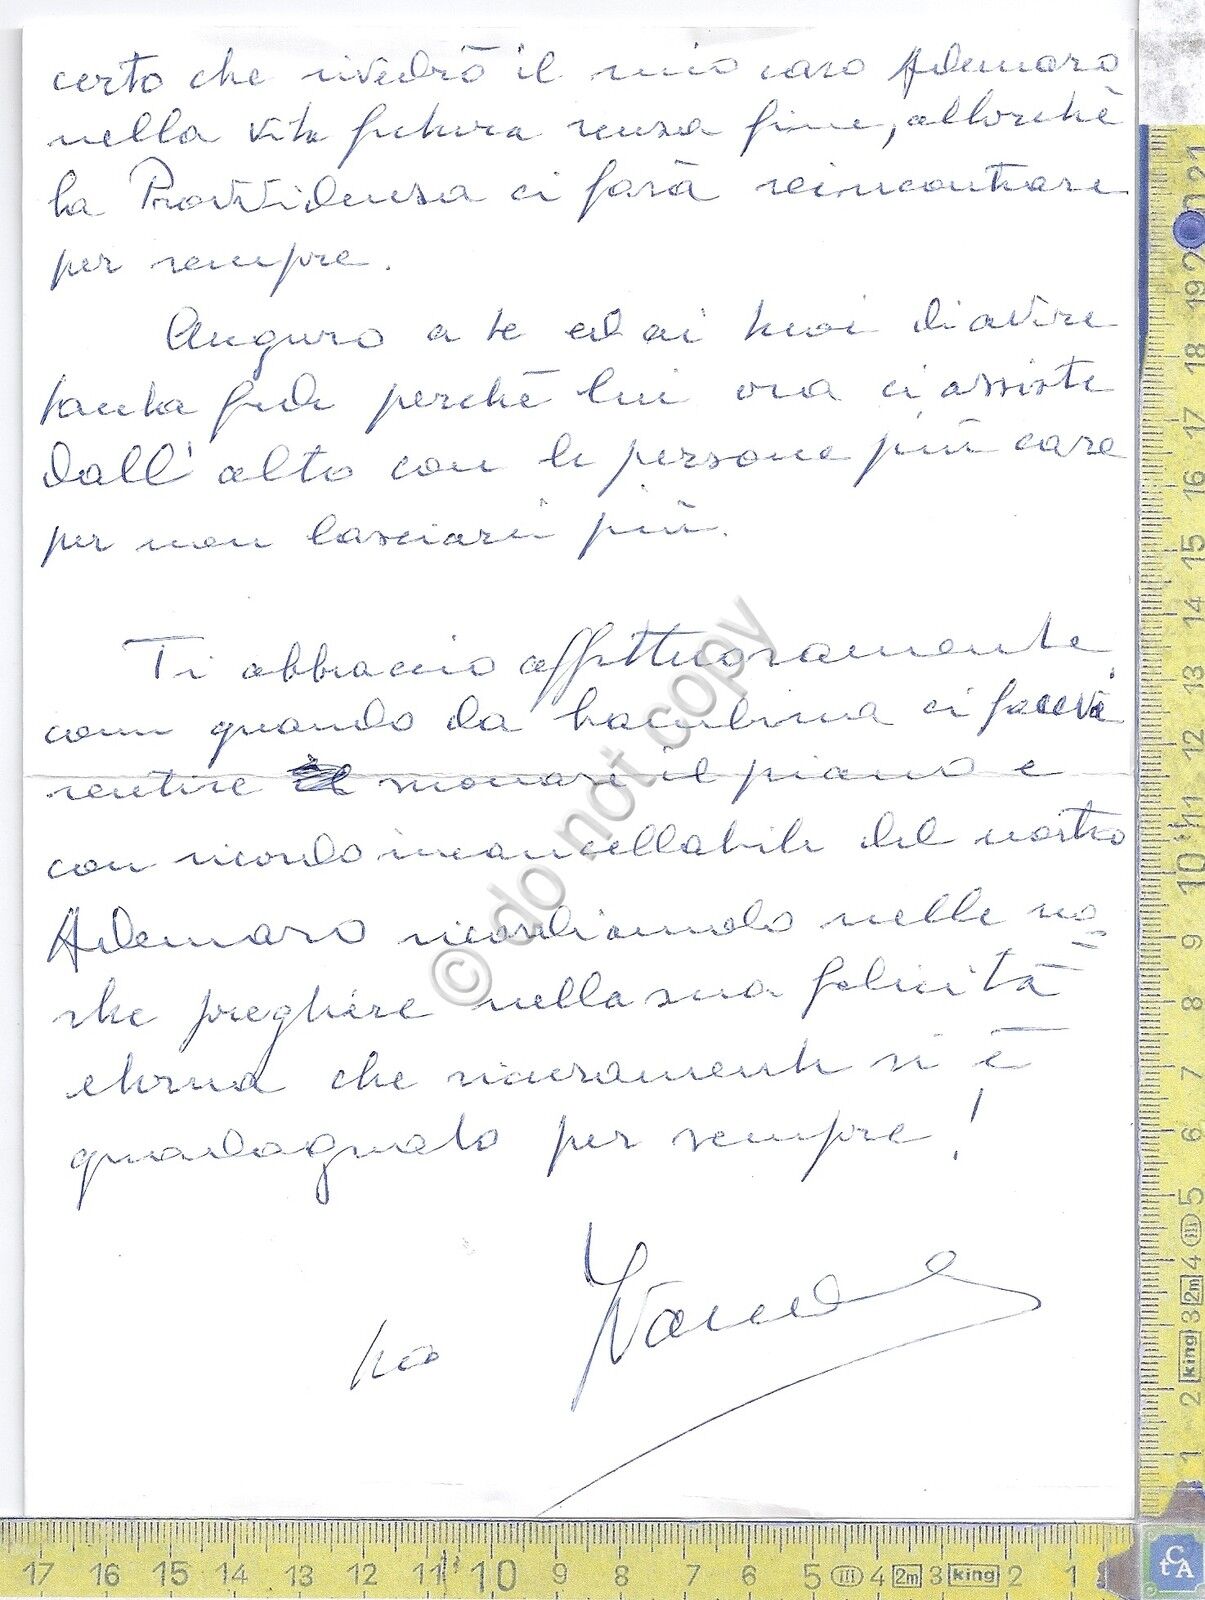 certo che rivedrò il mio caro Ademaro
nella vita futura senza fine, allorchè
la Provvidenza ci farà reincontrare
per sempre.
Auguro a te ed ai tuoi di avere
tanta fede perchè lui ora ci assiste
dall' alto con le persone più care
per non lasciarci più.
Ti abbraccio affettuosamente
come quando da bambina ci facevi
sentire suonare il piano e
con ricordo incancellabile del nostro
Ademaro ricordiamolo nelle no=
stre preghiere nella sua felicità
eterna che sicuramente si è
guadagnato per sempre!
tuo
© do not copy
21
20
19
18
17
16
15
14
13
12
11
10
9
8
7
6
5
III
4
2m
3
king
2
1
17 16 15 14 13 12 11 10 9 8 7 6 5 III 4 2m 3 king 2 1
tCA